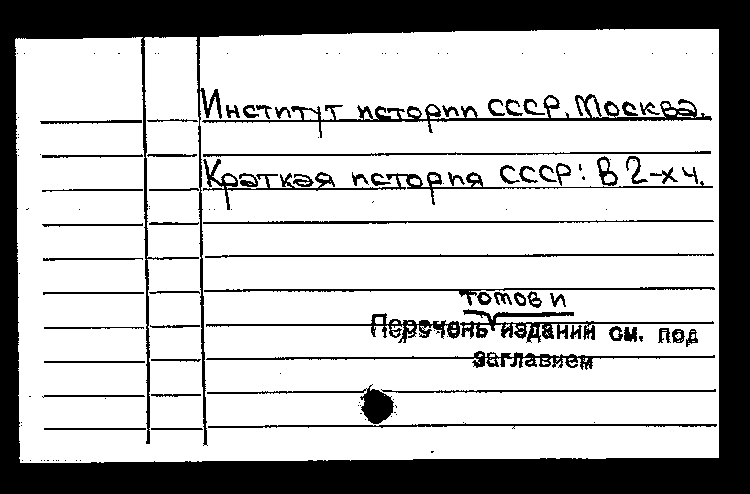 Институт истории СССР. Москва.
Краткая история СССР: В 2-х ч.
томов и
Перечень изданий см. под
заглавием